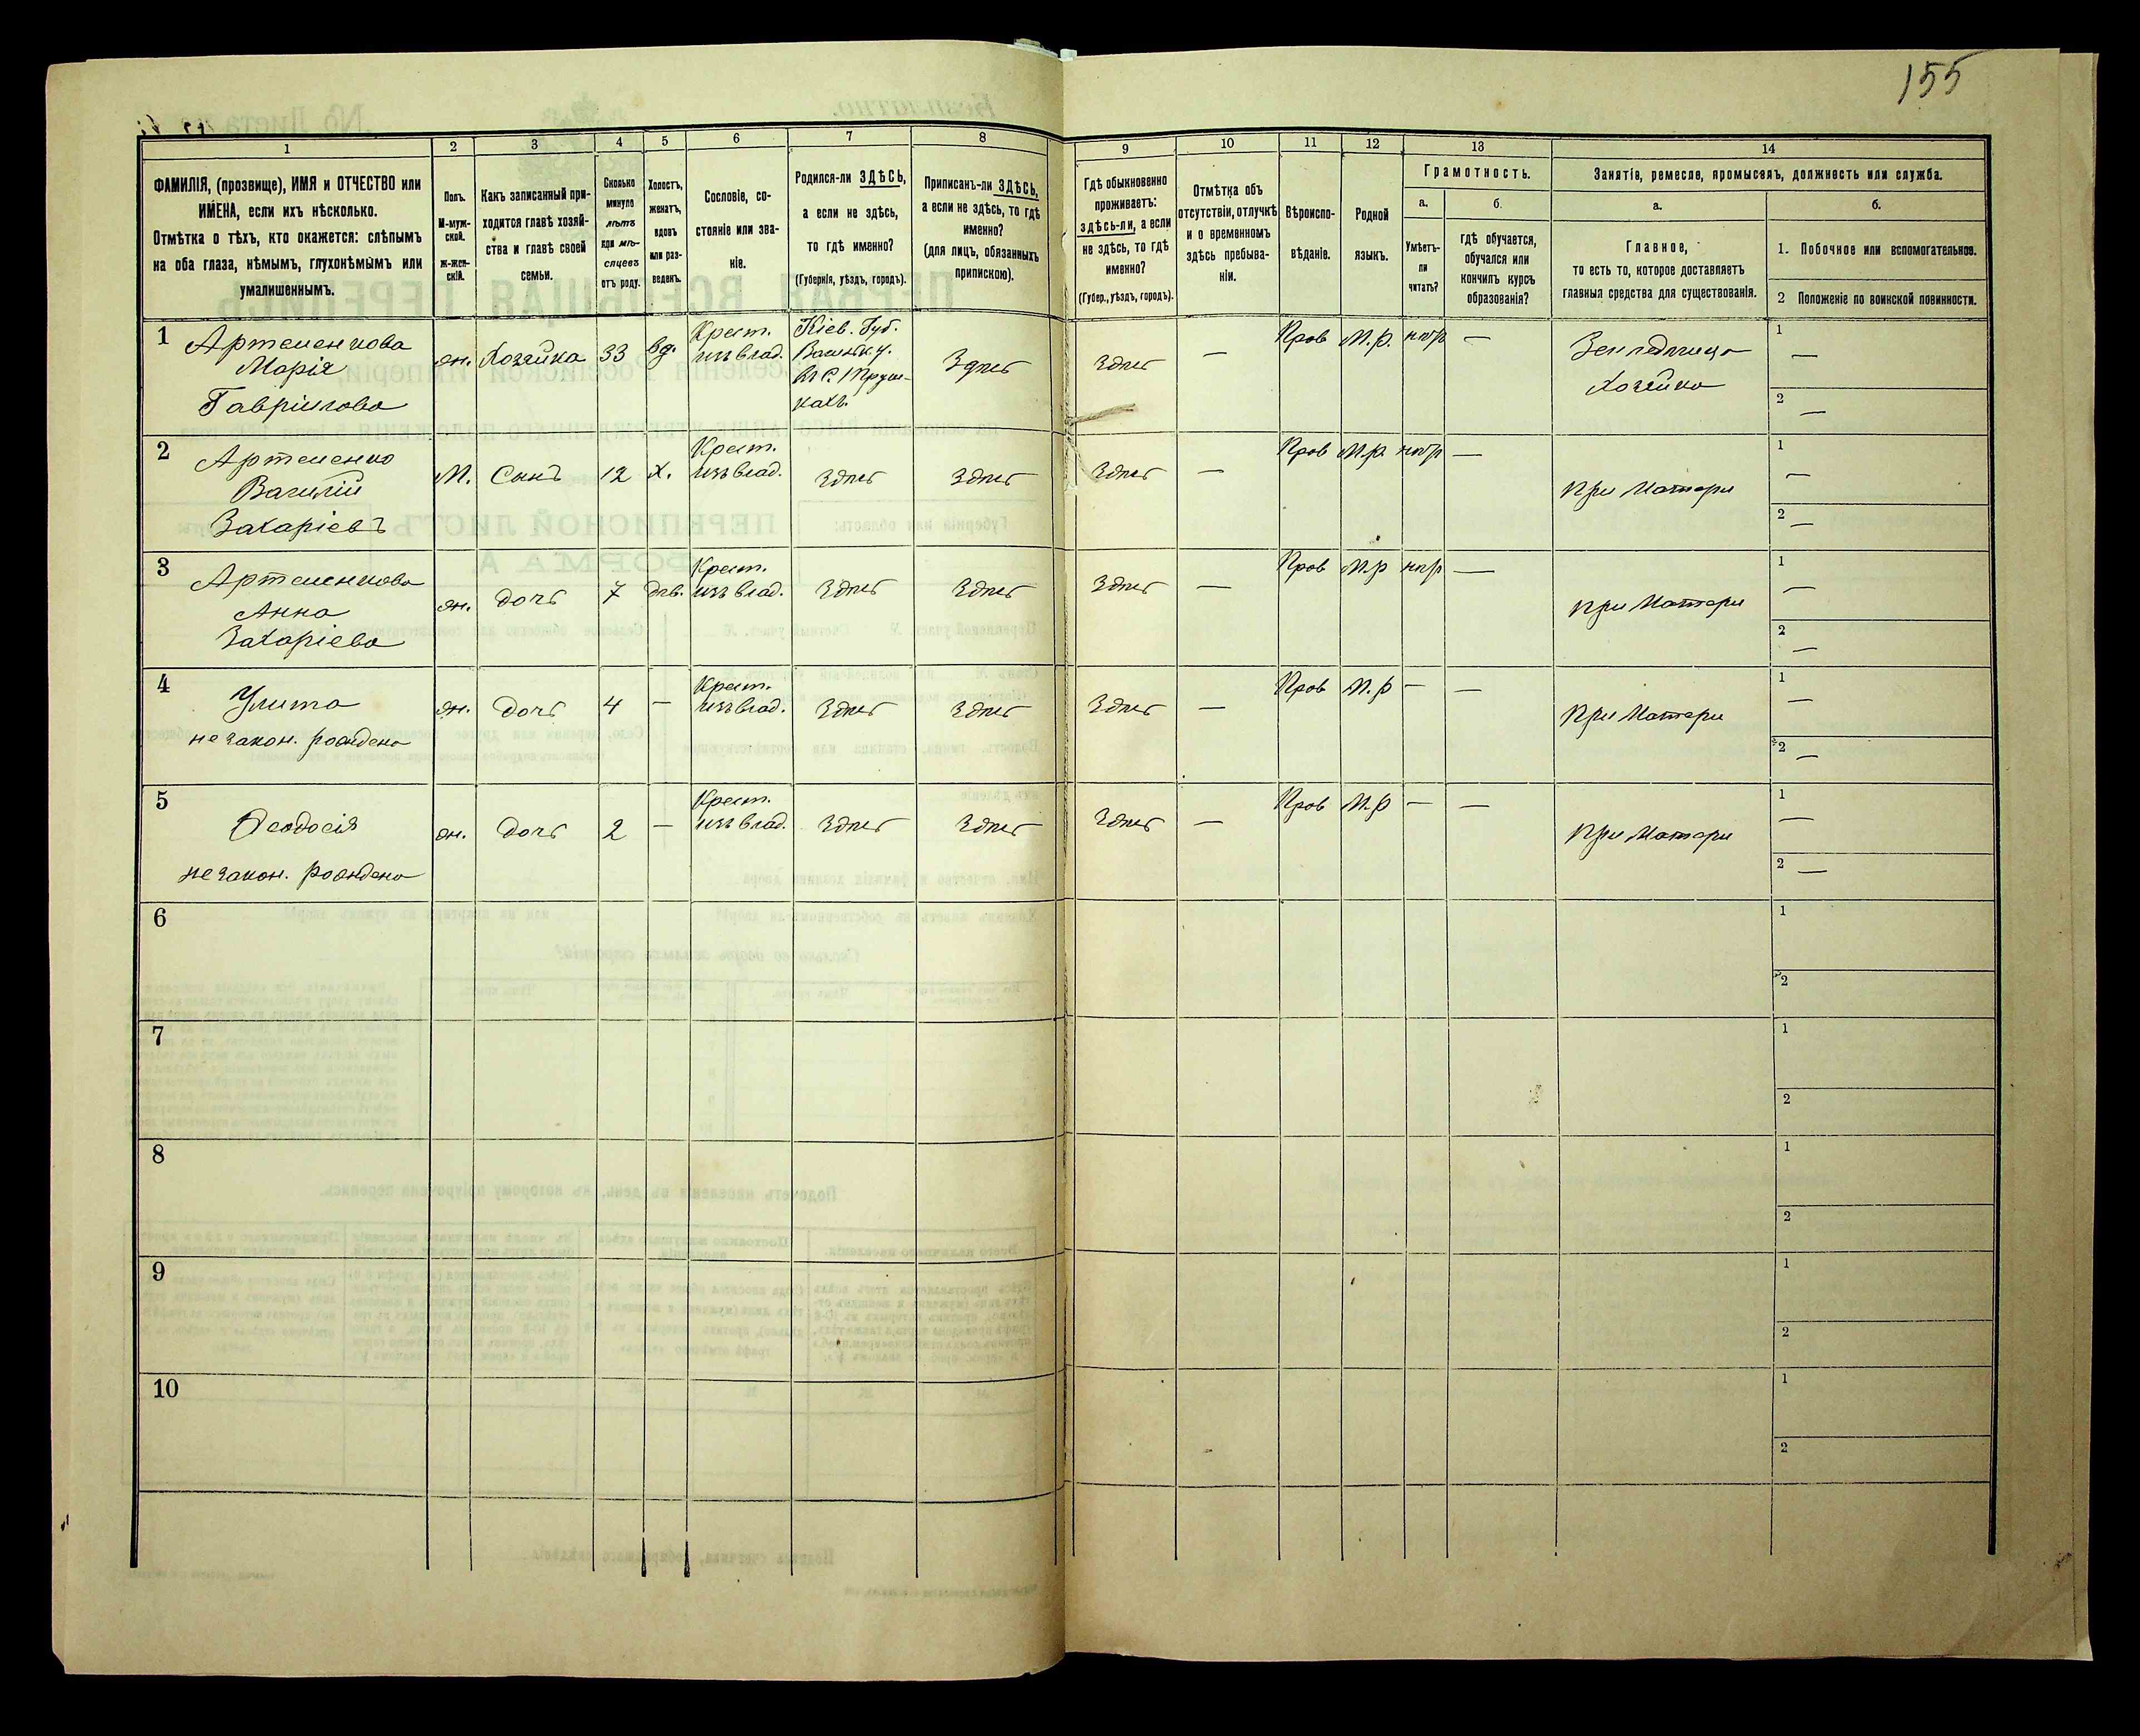 155
1 2 3 4 5 6 7 8 9 10 11 12 13 14
ФАМИЛІЯ, (прозвище), ИМЯ и ОТЧЕСТВО или
ИМЕНА, если ихъ нѣсколько.
Отмѣтка о тѣхъ, кто окажется: слѣпымъ
на оба глаза, нѣмымъ, глухонѣмымъ или
умалишеннымъ.
Полъ.
М-муж-
ской.
Ж-жен-
скій.
Какъ записанный при-
ходится главѣ хозяй-
ства и главѣ своей
семьи.
Сколько
минуло
лѣтъ
или мѣ-
сяцевъ
отъ роду.
Холостъ,
женатъ,
вдовъ
или раз-
веденъ.
Сословіе, со-
стояніе или зва-
ніе.
Родился-ли ЗДѢСЬ,
а если не здѣсь,
то гдѣ именно?
(Губернія, уѣздъ, городъ).
Приписанъ-ли ЗДѢСЬ,
а если не здѣсь, то гдѣ
именно?
(для лицъ, обязанныхъ
припискою).
Гдѣ обыкновенно
проживаетъ:
здѣсь-ли, а если
не здѣсь, то гдѣ
именно?
(Губер., уѣздъ, городъ).
Отмѣтка объ
отсутствіи, отлучкѣ
и о временномъ
здѣсь пребыва-
ніи.
Вѣроиспо-
вѣданіе.
Родной
языкъ.
Грамотность.
а.
Умѣетъ-
ли
читать?
б.
гдѣ обучается,
обучался или
кончилъ курсъ
образованія?
Занятіе, ремесло, промыселъ, должность или служба.
а.
Главное,
то есть то, которое доставляетъ
главныя средства для существованія.
б.
1. Побочное или вспомогательное.
2 Положеніе по воинской повинности.
1 Артеменкова
Марія
Гавріилова
жн. Хозяйка 33 вд.
Крест.
изъ влад.
Кіев. Губ.
Васильк. у.
въ с.
Здѣсь Здѣсь — Пров М.р. нтр —
Хозяйка
1 —
2 —
2 Артеменко
Василій
Захаріевъ
М. Сынъ 12 х.
Крест.
изъ влад.
Здѣсь Здѣсь Здѣсь — Пров М.р. нтр —
при Матери
1 —
2 —
3 Артеменкова
Анна
Захаріева
жн. дочь 7 дѣв.
Крест.
изъ влад.
Здѣсь Здѣсь Здѣсь — Пров М.р нтр —
при Матери
1 —
2 —
4 Улита
незакон. рождена
жн. дочь 4 —
Крест.
изъ влад.
Здѣсь Здѣсь Здѣсь — Пров М.р — —
при Матери
1 —
2 —
5 Феодосія
незакон. рождена
жн. дочь 2 —
Крест.
изъ влад.
Здѣсь Здѣсь Здѣсь — Пров М.р — —
при Матери
1 —
2 —
6
1
2
7
1
2
8
1
2
9
1
2
10
1
2